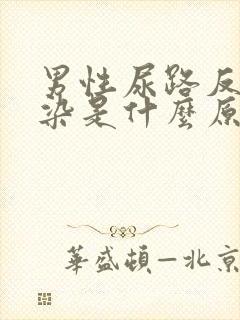 男性尿路反
染是什麼原
華盛頓—北京